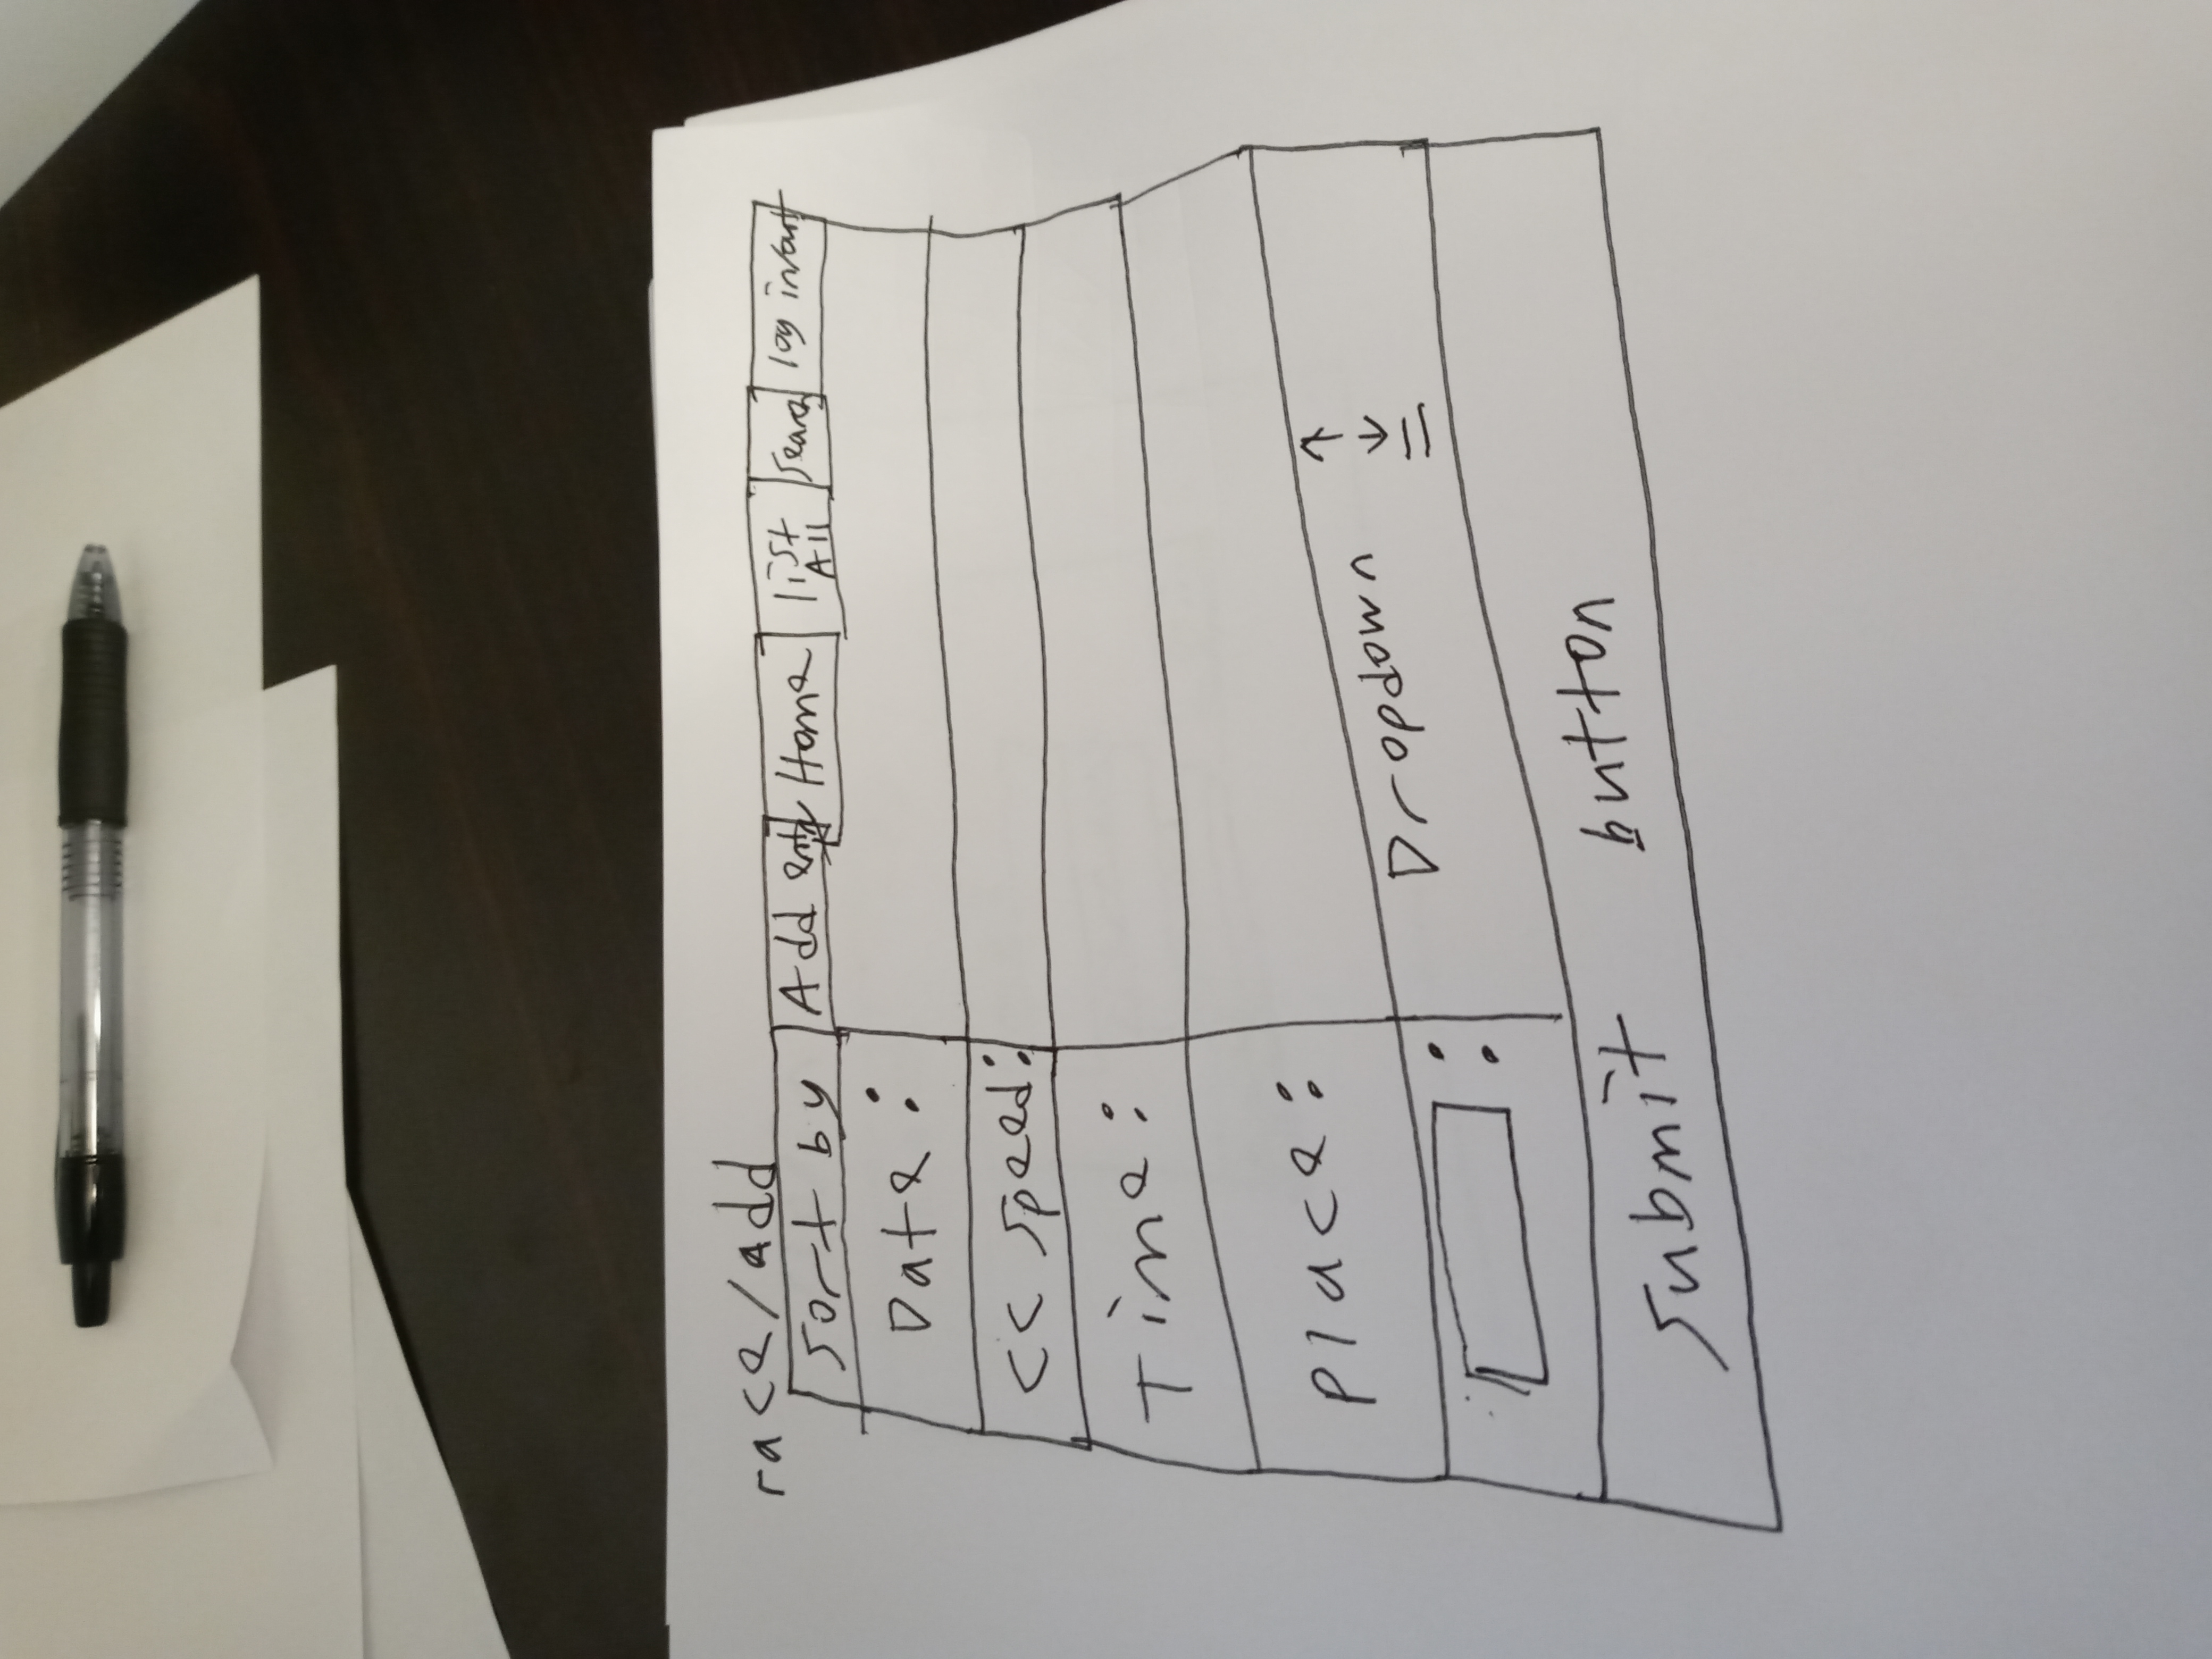 race/add
Sort by Add entry Home list All Search log in/out
Date :
<< Speed:
Time :
place :
: Dropdown ↑ ↓ =
Submit button